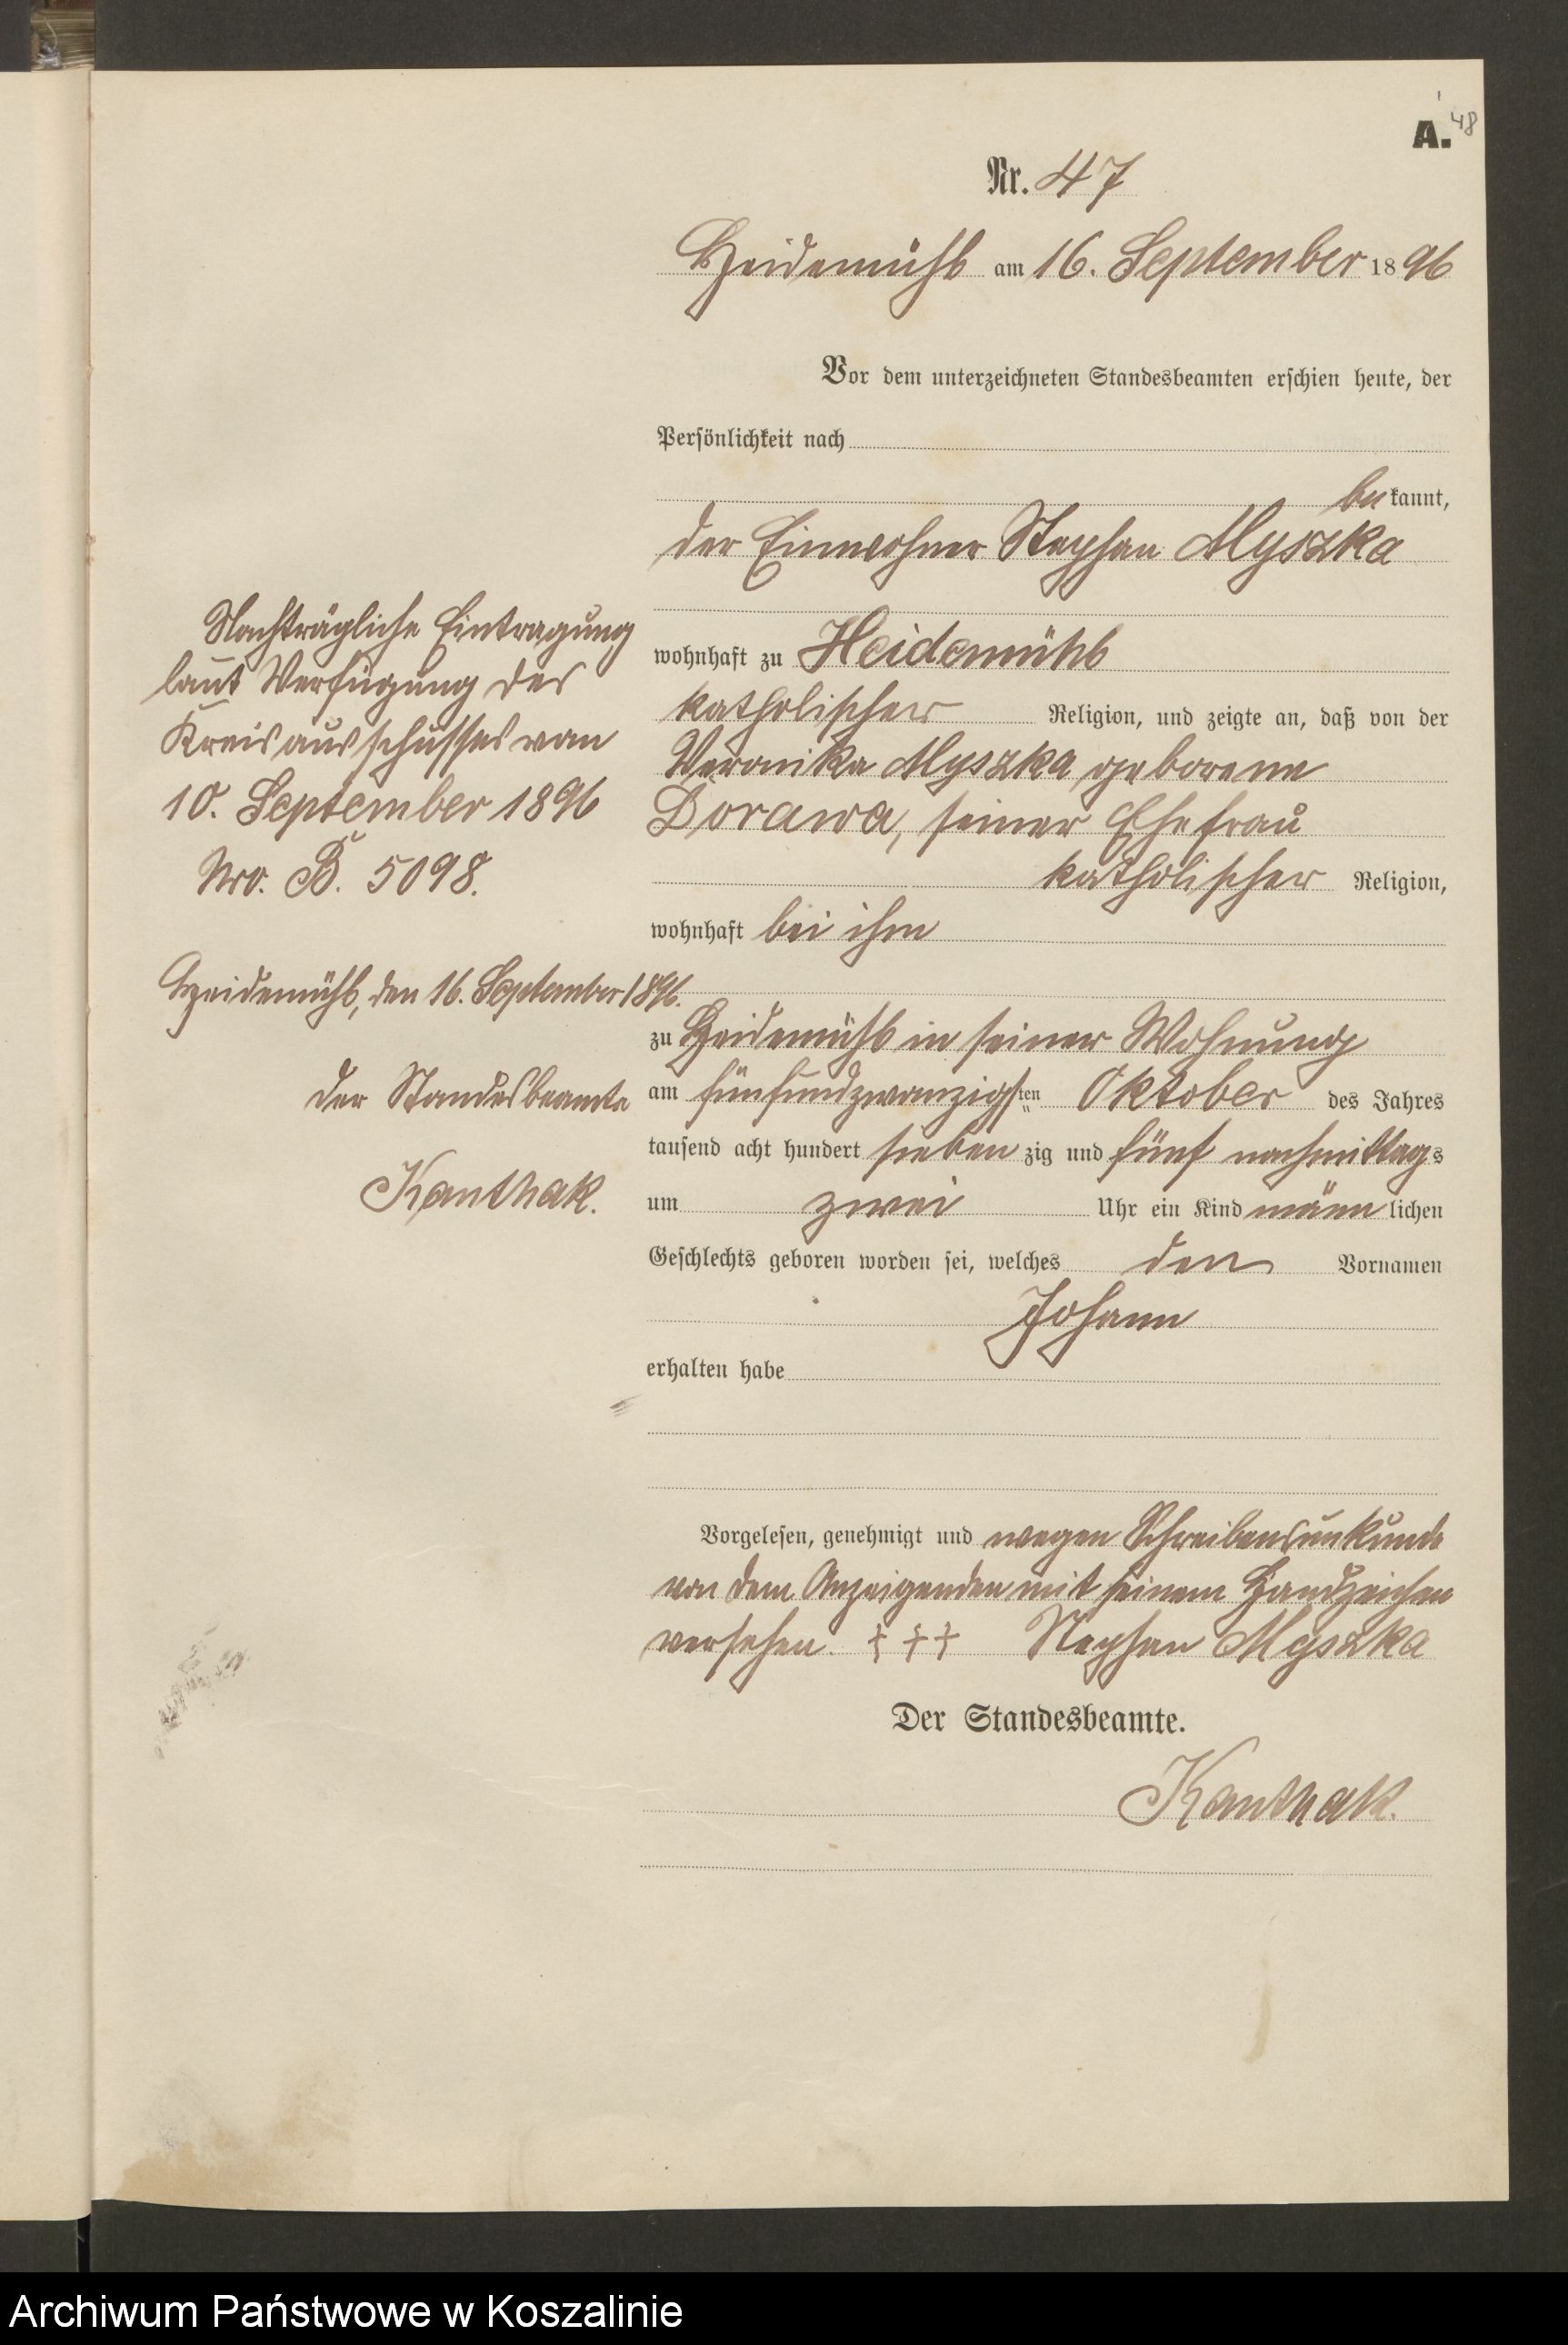 A. 48
Nr. 47
Heidemühl am 16. September 1896
Vor dem unterzeichneten Standesbeamten erschien heute, der
Persönlichkeit nach
bekannt,
der Einwohner Stephan Myszka
wohnhaft zu Heidemühl
katholischer Religion, und zeigte an, daß von der
Veronika Myszka geborene
Dorawa, seiner Ehefrau
katholischer Religion,
wohnhaft bei ihm
zu Heidemühl in seiner Wohnung
am fünfundzwanzigsten Oktober des Jahres
tausend acht hundert siebenzig und fünf nachmittags
um zwei Uhr ein Kind männlichen
Geschlechts geboren worden sei, welches den Vornamen
Johann
erhalten habe
Vorgelesen, genehmigt und wegen Schreibensunkunde
von dem Anzeigenden mit seinem Handzeichen
versehen. ††† Stephan Myszka
Der Standesbeamte.
Kanthak.
Nachträgliche Eintragung
laut Verfügung des
Kreisausschusses vom
10. September 1896
Nro. B. 5098.
Heidemühl, den 16. September 1896.
Der Standesbeamte
Kanthak.
Archiwum Państwowe w Koszalinie